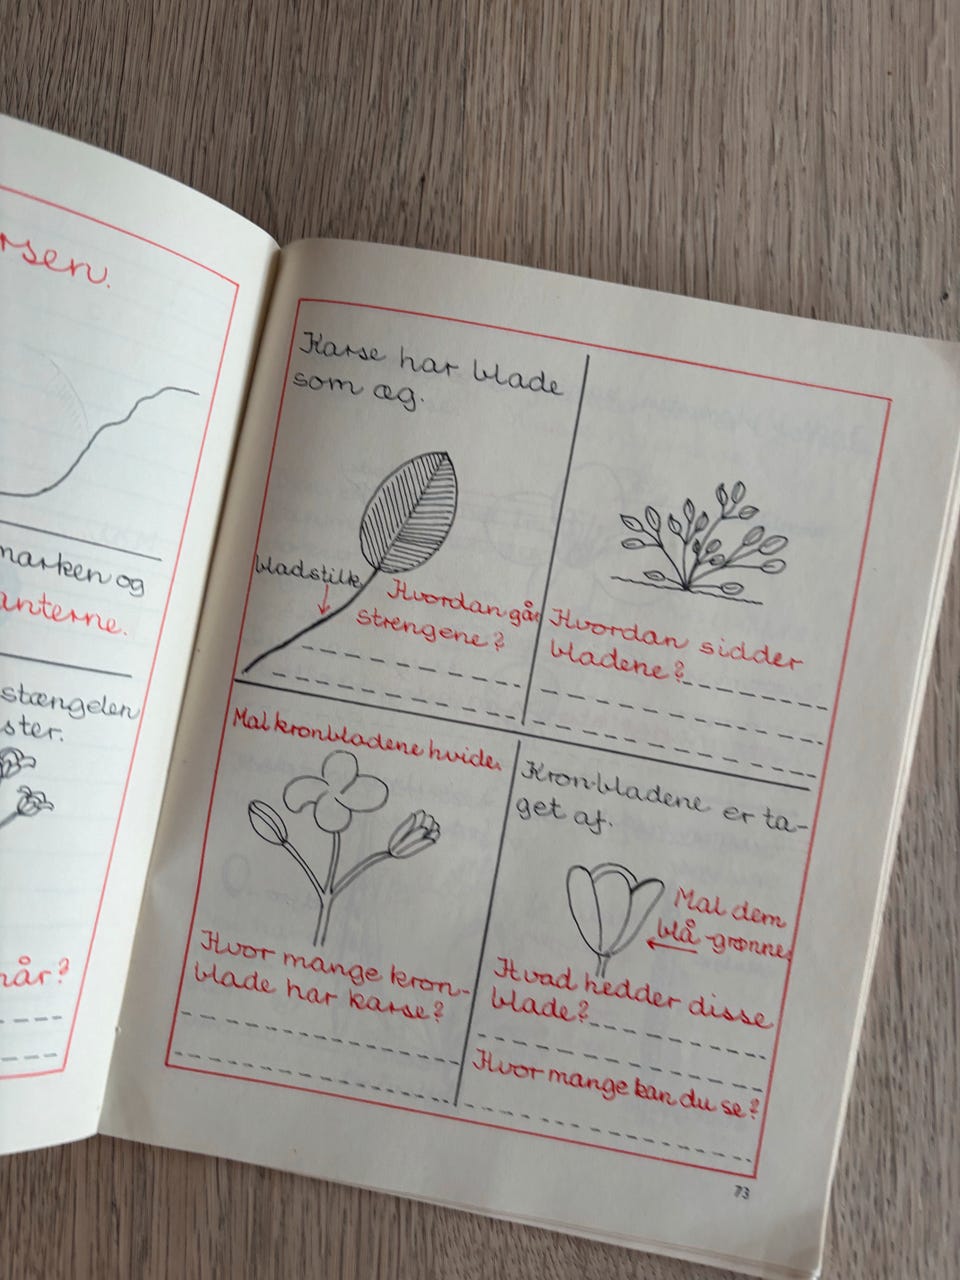 rsen.
marken og
anterne.
stængelen
ster.
når?
Karse har blade
som æg.
bladstilk
Hvordan går
strengene?
Hvordan sidder
bladene?
Mal kronbladene hvide.
Hvor mange kron-
blade har karse?
Kronbladene er ta-
get af.
Mal dem
blå-grønne.
Hvad hedder disse
blade?
Hvor mange kan du se?
73